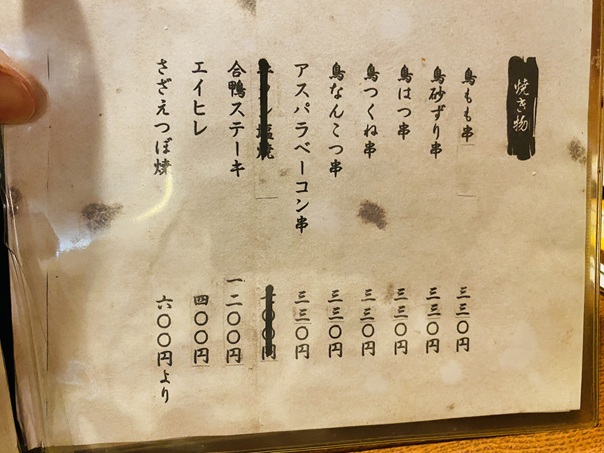 焼き物
鳥もも串 三三〇円
鳥砂ずり串 三三〇円
鳥はつ串 三三〇円
鳥つくね串 三三〇円
鳥なんこつ串 三三〇円
アスパラベーコン串 三三〇円
塩焼 〇〇円
合鴨ステーキ 一二〇〇円
エイヒレ 四〇〇円
さざえつぼ焼 六〇〇円より